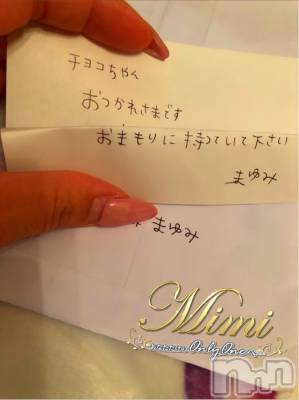 チヨコちゃん
おつかれさまです
おまもりに持っていて下さい
まゆみ
まゆみ
Mimi
OnlyOne